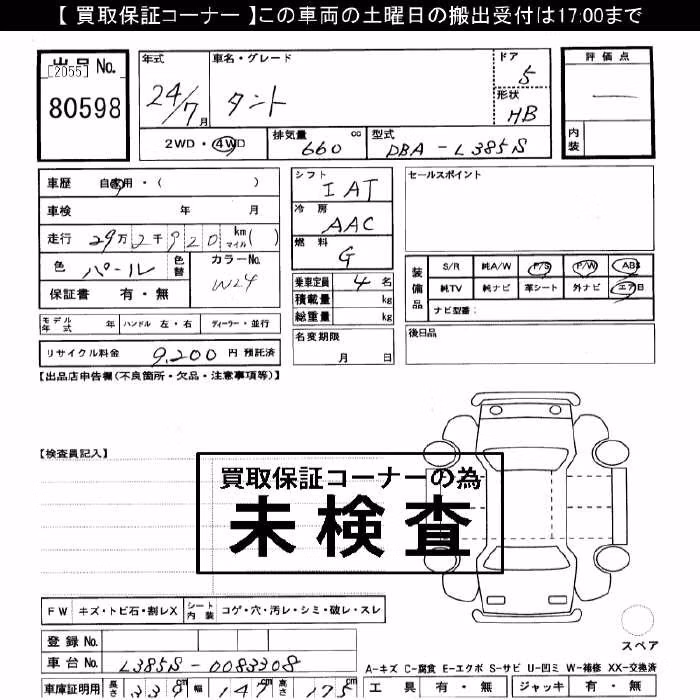 【 買取保証コーナー 】この車両の土曜日の搬出受付は17:00まで
出品 No.
[2055]
80598
年式
24/7月
車名・グレード
タント
ドア
5
形状
HB
評価点
—
内装
2WD・4WD
排気量 660 cc
型式 DBA-L385S
車歴 自家用・( )
車検 年 月
走行 29万2千920 km マイル( )
色 パール 色替
カラーNo. W24
保証書 有・無
シフト IAT
冷房 AAC
燃料 G
乗車定員 4 名
積載量 kg
総重量 kg
セールスポイント
装備品
S/R 純A/W P/S P/W ABS
純TV 純ナビ 革シート 外ナビ エアB
ナビ型番:
モデル年式 年 ハンドル 左・右 ディーラー・並行
リサイクル料金 9,200 円 預託済
名変期限
月 日
後日品
【出品店申告欄(不良箇所・欠品・注意事項等)】
【検査員記入】
買取保証コーナーの為
未検査
FW キズ・トビ石・割レX シート内装 コゲ・穴・汚レ・シミ・破レ・スレ
登録 No.
車台 No. L385S-0083308
車庫証明用 長さ 339 cm 幅 147 cm 高さ 175 cm
スペア
A-キズ C-腐食 E-エクボ S-サビ U-凹ミ W-補修 XX-交換済
工具 有・無 ジャッキ 有・無